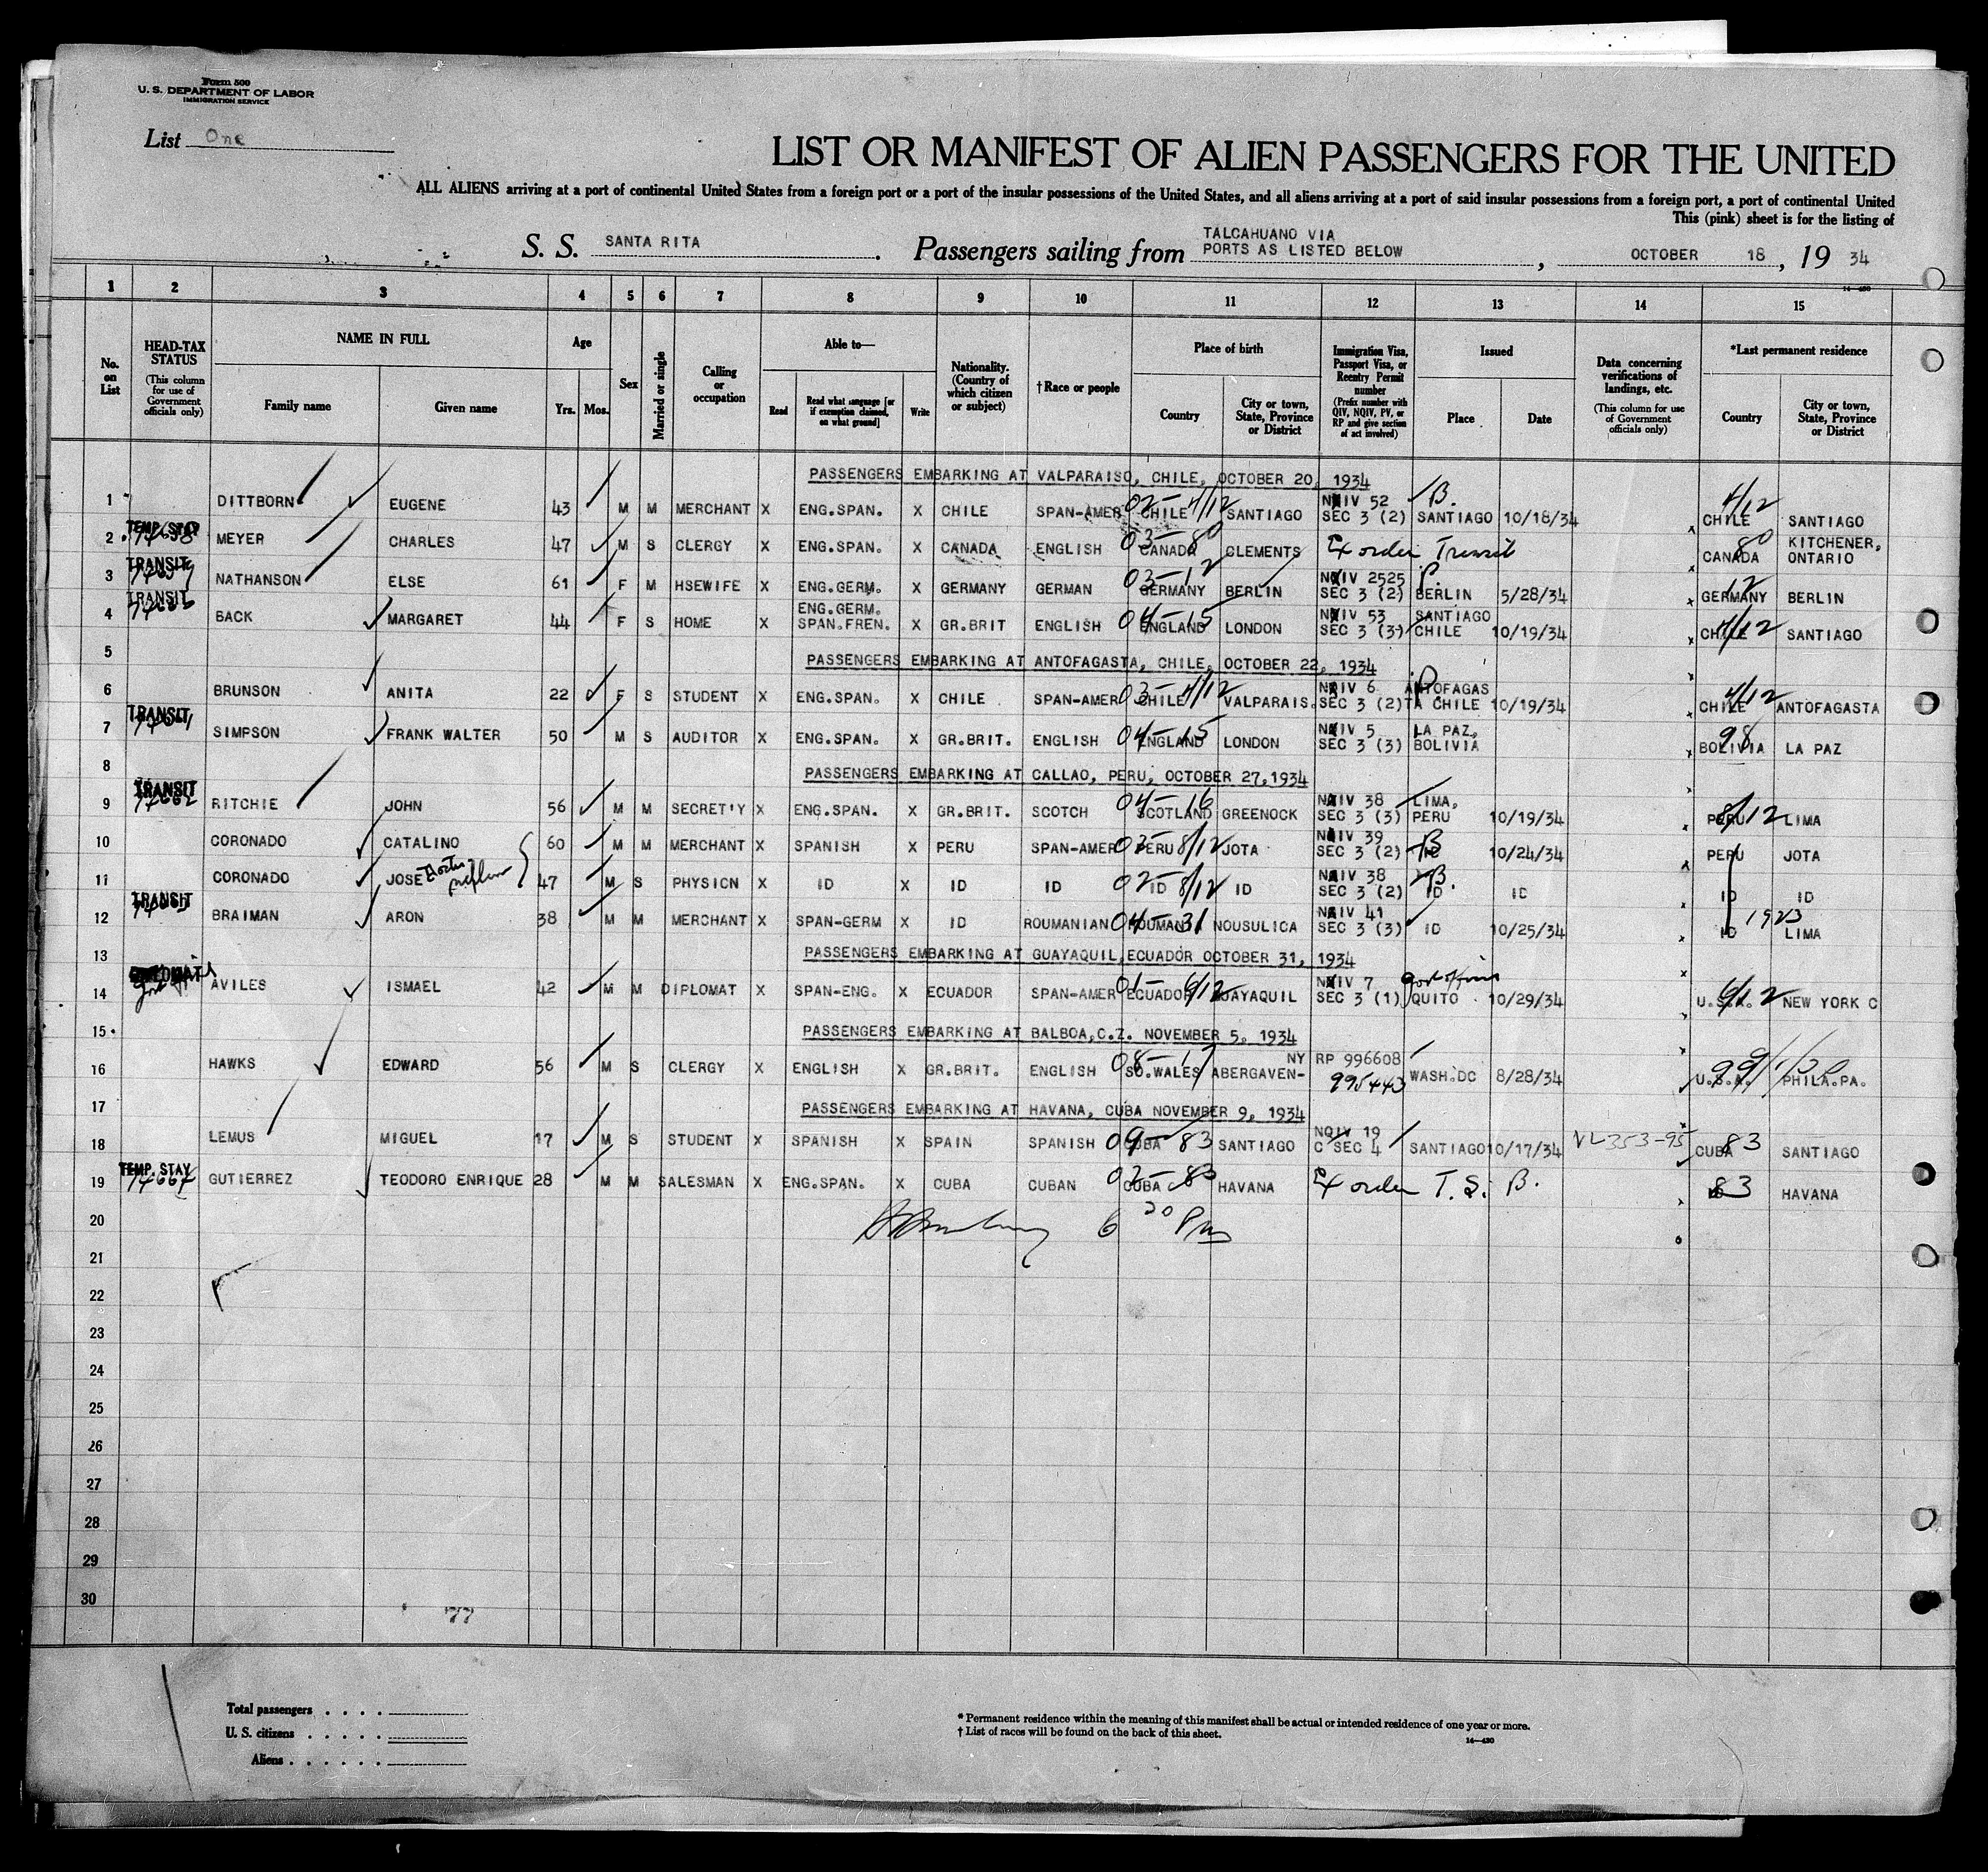 Form 500
U. S. DEPARTMENT OF LABOR
IMMIGRATION SERVICE
List One
LIST OR MANIFEST OF ALIEN PASSENGERS FOR THE UNITED
ALL ALIENS arriving at a port of continental United States from a foreign port or a port of the insular possessions of the United States, and all aliens arriving at a port of said insular possessions from a foreign port, a port of continental United
This (pink) sheet is for the listing of
S. S. SANTA RITA. Passengers sailing from TALCAHUANO VIA
PORTS AS LISTED BELOW, OCTOBER 18, 19 34
1 2 3 4 5 6 7 8 9 10 11 12 13 14 15
No. on List
HEAD-TAX STATUS
(This column for use of Government officials only)
NAME IN FULL
Family name Given name
Age
Yrs. Mos.
Sex
Married or single
Calling or occupation
Able to—
Read
Read what language [or if exemption claimed, on what ground]
Write
Nationality. (Country of which citizen or subject)
†Race or people
Place of birth
Country
City or town, State, Province or District
Immigration Visa, Passport Visa, or Reentry Permit number
(Prefix number with QIV, NQIV, PV, or RP and give section of act involved)
Issued
Place Date
Data concerning verifications of landings, etc.
(This column for use of Government officials only)
*Last permanent residence
Country
City or town, State, Province or District
PASSENGERS EMBARKING AT VALPARAISO, CHILE, OCTOBER 20, 1934
1 DITTBORN EUGENE 43 M M MERCHANT X ENG.SPAN. X CHILE SPAN-AMER 02-4/12 CHILE SANTIAGO NIV 52 SEC 3 (2) B. SANTIAGO 10/18/34 4/12 CHILE SANTIAGO
2 TEMP. STAY 74658 MEYER CHARLES 47 M S CLERGY X ENG.SPAN. X CANADA ENGLISH 03-80 CANADA CLEMENTS Ex order Transit 80 CANADA KITCHENER, ONTARIO
3 TRANSIT NATHANSON ELSE 61 F M HSEWIFE X ENG.GERM. X GERMANY GERMAN 03-12 GERMANY BERLIN NIV 2525 SEC 3 (2) BERLIN 5/28/34 12 GERMANY BERLIN
4 TRANSIT BACK MARGARET 44 F S HOME X ENG.GERM. SPAN.FREN. X GR.BRIT ENGLISH 04-15 ENGLAND LONDON NIV 53 SEC 3 (3) SANTIAGO CHILE 10/19/34 4/12 CHILE SANTIAGO
5 PASSENGERS EMBARKING AT ANTOFAGASTA, CHILE, OCTOBER 22, 1934
6 BRUNSON ANITA 22 F S STUDENT X ENG.SPAN. X CHILE SPAN-AMER 03-4/12 CHILE VALPARAIS. NIV 6 SEC 3 (2) ANTOFAGASTA CHILE 10/19/34 4/12 CHILE ANTOFAGASTA
7 TRANSIT SIMPSON FRANK WALTER 50 M S AUDITOR X ENG.SPAN. X GR.BRIT. ENGLISH 04-15 ENGLAND LONDON NIV 5 SEC 3 (3) LA PAZ, BOLIVIA 98 BOLIVIA LA PAZ
8 PASSENGERS EMBARKING AT CALLAO, PERU, OCTOBER 27,1934
9 TRANSIT 74662 RITCHIE JOHN 56 M M SECRET'Y X ENG.SPAN. X GR.BRIT. SCOTCH 04-16 SCOTLAND GREENOCK NIV 38 SEC 3 (3) LIMA, PERU 10/19/34 8/12 PERU LIMA
10 CORONADO CATALINO 60 M M MERCHANT X SPANISH X PERU SPAN-AMER 03-8/12 PERU JOTA NIV 39 SEC 3 (2) B 10/24/34 PERU JOTA
11 CORONADO JOSE 47 M S PHYSICN X ID X ID ID 02-8/12 ID ID NIV 38 SEC 3 (2) B. ID ID ID ID
12 TRANSIT BRAIMAN ARON 38 M M MERCHANT X SPAN-GERM X ID ROUMANIAN 04-31 ROUMANI NOUSULICA NIV 41 SEC 3 (3) ID 10/25/34 1923 ID LIMA
13 PASSENGERS EMBARKING AT GUAYAQUIL,ECUADOR OCTOBER 31, 1934
14 AVILES ISMAEL 42 M M DIPLOMAT X SPAN-ENG. X ECUADOR SPAN-AMER 01-6/12 ECUADOR GUAYAQUIL NIV 7 SEC 3 (1) QUITO 10/29/34 6/12 U.S.A. NEW YORK C
15 PASSENGERS EMBARKING AT BALBOA,C.Z. NOVEMBER 5, 1934
16 HAWKS EDWARD 56 M S CLERGY X ENGLISH X GR.BRIT. ENGLISH 08-17 SO.WALES ABERGAVEN-NY RP 996608 995443 WASH.DC 8/28/34 U.S.A. PHILA.PA.
17 PASSENGERS EMBARKING AT HAVANA, CUBA NOVEMBER 9, 1934
18 LEMUS MIGUEL 17 M S STUDENT X SPANISH X SPAIN SPANISH 09-83 CUBA SANTIAGO NQIV 19 C SEC 4 SANTIAGO 10/17/34 VL-353-95 CUBA 83 SANTIAGO
19 TEMP. STAY 74664 GUTIERREZ TEODORO ENRIQUE 28 M M SALESMAN X ENG.SPAN. X CUBA CUBAN 02-83 CUBA HAVANA Ex order T. S. B. 83 HAVANA
20 6 30 PM
21
22
23
24
25
26
27
28
29
30
77
Total passengers . . . .
U. S. citizens . . . . .
Aliens . . . . . .
* Permanent residence within the meaning of this manifest shall be actual or intended residence of one year or more.
† List of races will be found on the back of this sheet.
14—430